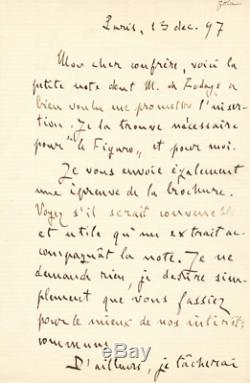 Zola
Paris, 13 dec. 97
Mon cher confrère, voici la
petite note dont M. de Rodays a
bien voulu me promettre l'inser-
tion. Je la trouve nécessaire
pour "le Figaro" et pour moi.
Je vous envoie également
une épreuve de la brochure.
Voyez s'il serait convenable
et utile qu'un extrait ac-
compagnât la note. Je ne
demande rien, je desire sim-
plement que vous fassiez
pour le mieux de nos intérêts
communs.
D'ailleurs, je tâcherai